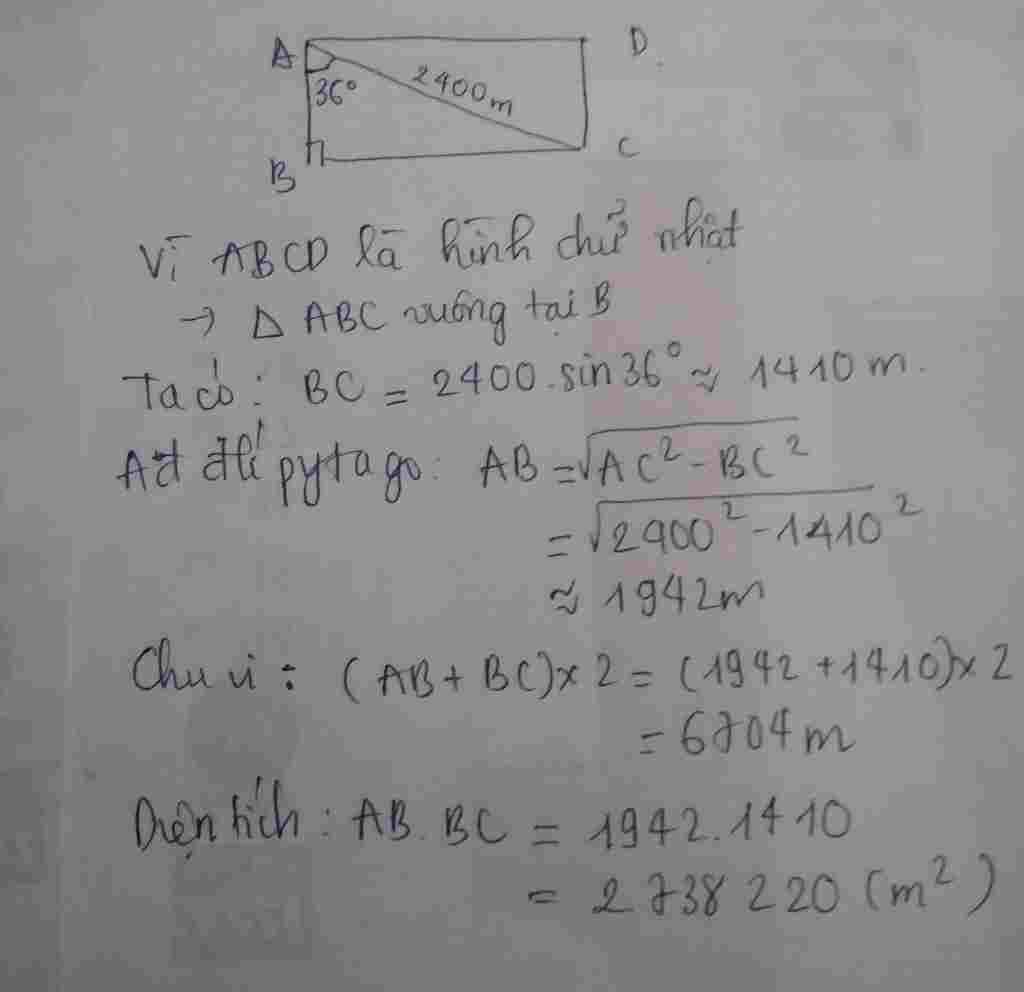 A
D.
36°
2400m
B
C
Vì ABCD là hình chử nhật
→ Δ ABC vuông tại B
Ta có: BC = 2400.sin36° ≈ 1410 m.
Ad đlí pytago: AB = √AC² - BC²
= √2900² - 1410²
≈ 1942m
Chu vi: (AB + BC)x 2 = (1942 + 1410)x 2
= 6704 m
Diện tích: AB.BC = 1942.1410
= 2 738 220 (m²)